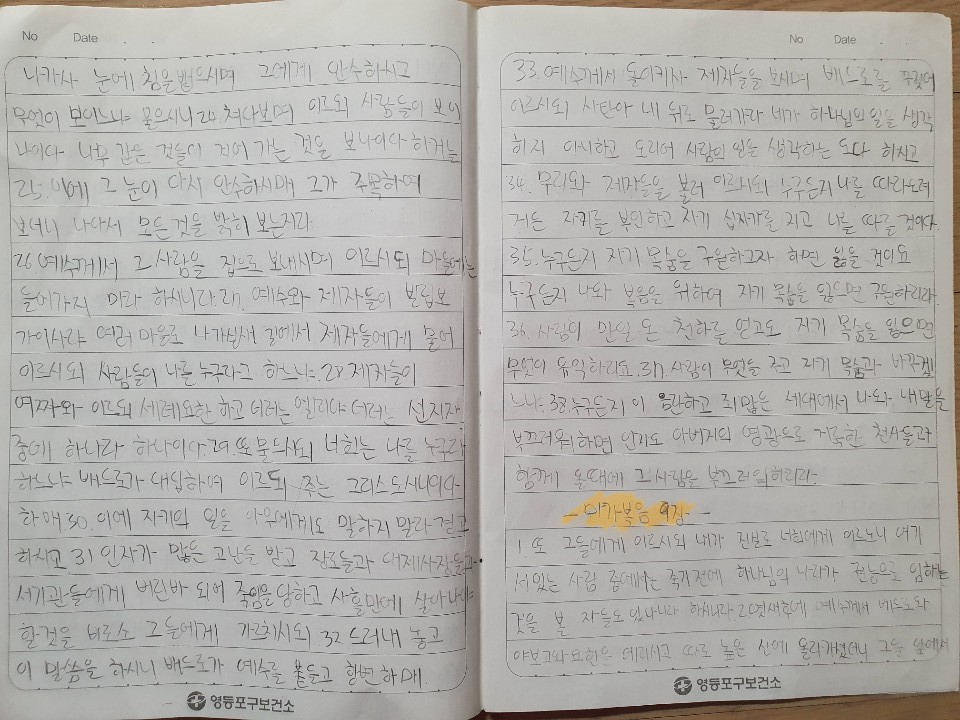 No Date
나가사 눈에 침을 뱉으시며 그에게 안수하시고
무엇이 보이느냐 물으시니 24. 쳐다보며 이르되 사람들이 보이
나이다 나무 같은 것들이 걸어 가는 것을 보나이다 하거늘
25. 이에 그 눈에 다시 안수하시매 그가 주목하여
보더니 나아서 모든것을 밝히 보는지라
26 예수께서 그 사람을 집으로 보내시며 이르시되 마을에는
들어가지 마라 하시니라. 27. 예수와 제자들이 빌립보
가이사랴 여러 마을로 나가실새 길에서 제자들에게 물어
이르시되 사람들이 나를 누구라고 하느냐. 28 제자들이
여짜와 이르되 세례요한 하고 더러는 엘리야 더러는 선지자
중에 하나라 하나이다. 29. 또 물으시되 너희는 나를 누구라
하느냐 베드로가 대답하여 이르되 주는 그리스도시니이다
하매 30. 이에 자기의 일을 아무에게도 말하지 말라 경고
하시고 31 인자가 많은 고난을 받고 장로들과 대제사장들과
서기관들에게 버린바 되어 죽임을 당하고 사흘만에 살아나야
할것을 비로소 그들에게 가르치시되 32 드러내 놓고
이 말씀을 하시니 베드로가 예수를 붙들고 항변하매
영등포구보건소
No Date
33. 예수께서 돌이키사 제자들을 보시며 베드로를 꾸짖어
이르시되 사탄아 내 뒤로 물러가라 네가 하나님의 일을 생각
하지 아니하고 도리어 사람의 일을 생각하는 도다 하시고
34. 무리와 제자들을 불러 이르시되 누구든지 나를 따라오려
거든 자기를 부인하고 자기 십자가를 지고 나를 따를 것이다.
35. 누구든지 자기 목숨을 구원하고자 하면 잃을 것이요
누구든지 나와 복음을 위하여 자기 목숨을 잃으면 구원하리라.
36. 사람이 만일 온 천하를 얻고도 자기 목숨을 잃으면
무엇이 유익하리요. 37. 사람이 무엇을 주고 자기 목숨과 바꾸겠
느냐. 38. 누구든지 이 음란하고 죄많은 세대에서 나와 내 말을
부끄러워하면 인자도 아버지의 영광으로 거룩한 천사들과
함께 올때에 그 사람을 부끄러워하리라
- 마가복음 9장 -
1. 또 그들에게 이르시되 내가 진실로 너희에게 이르노니 여기
서있는 사람 중에서는 죽기전에 하나님의 나라가 권능으로 임하는
것을 볼 자들도 있나니라 하시니라. 2. 엿새후에 예수께서 베드로와
야보고와 요한을 데리시고 따로 높은 산에 올라가셨더니 그들 앞에서
영등포구보건소